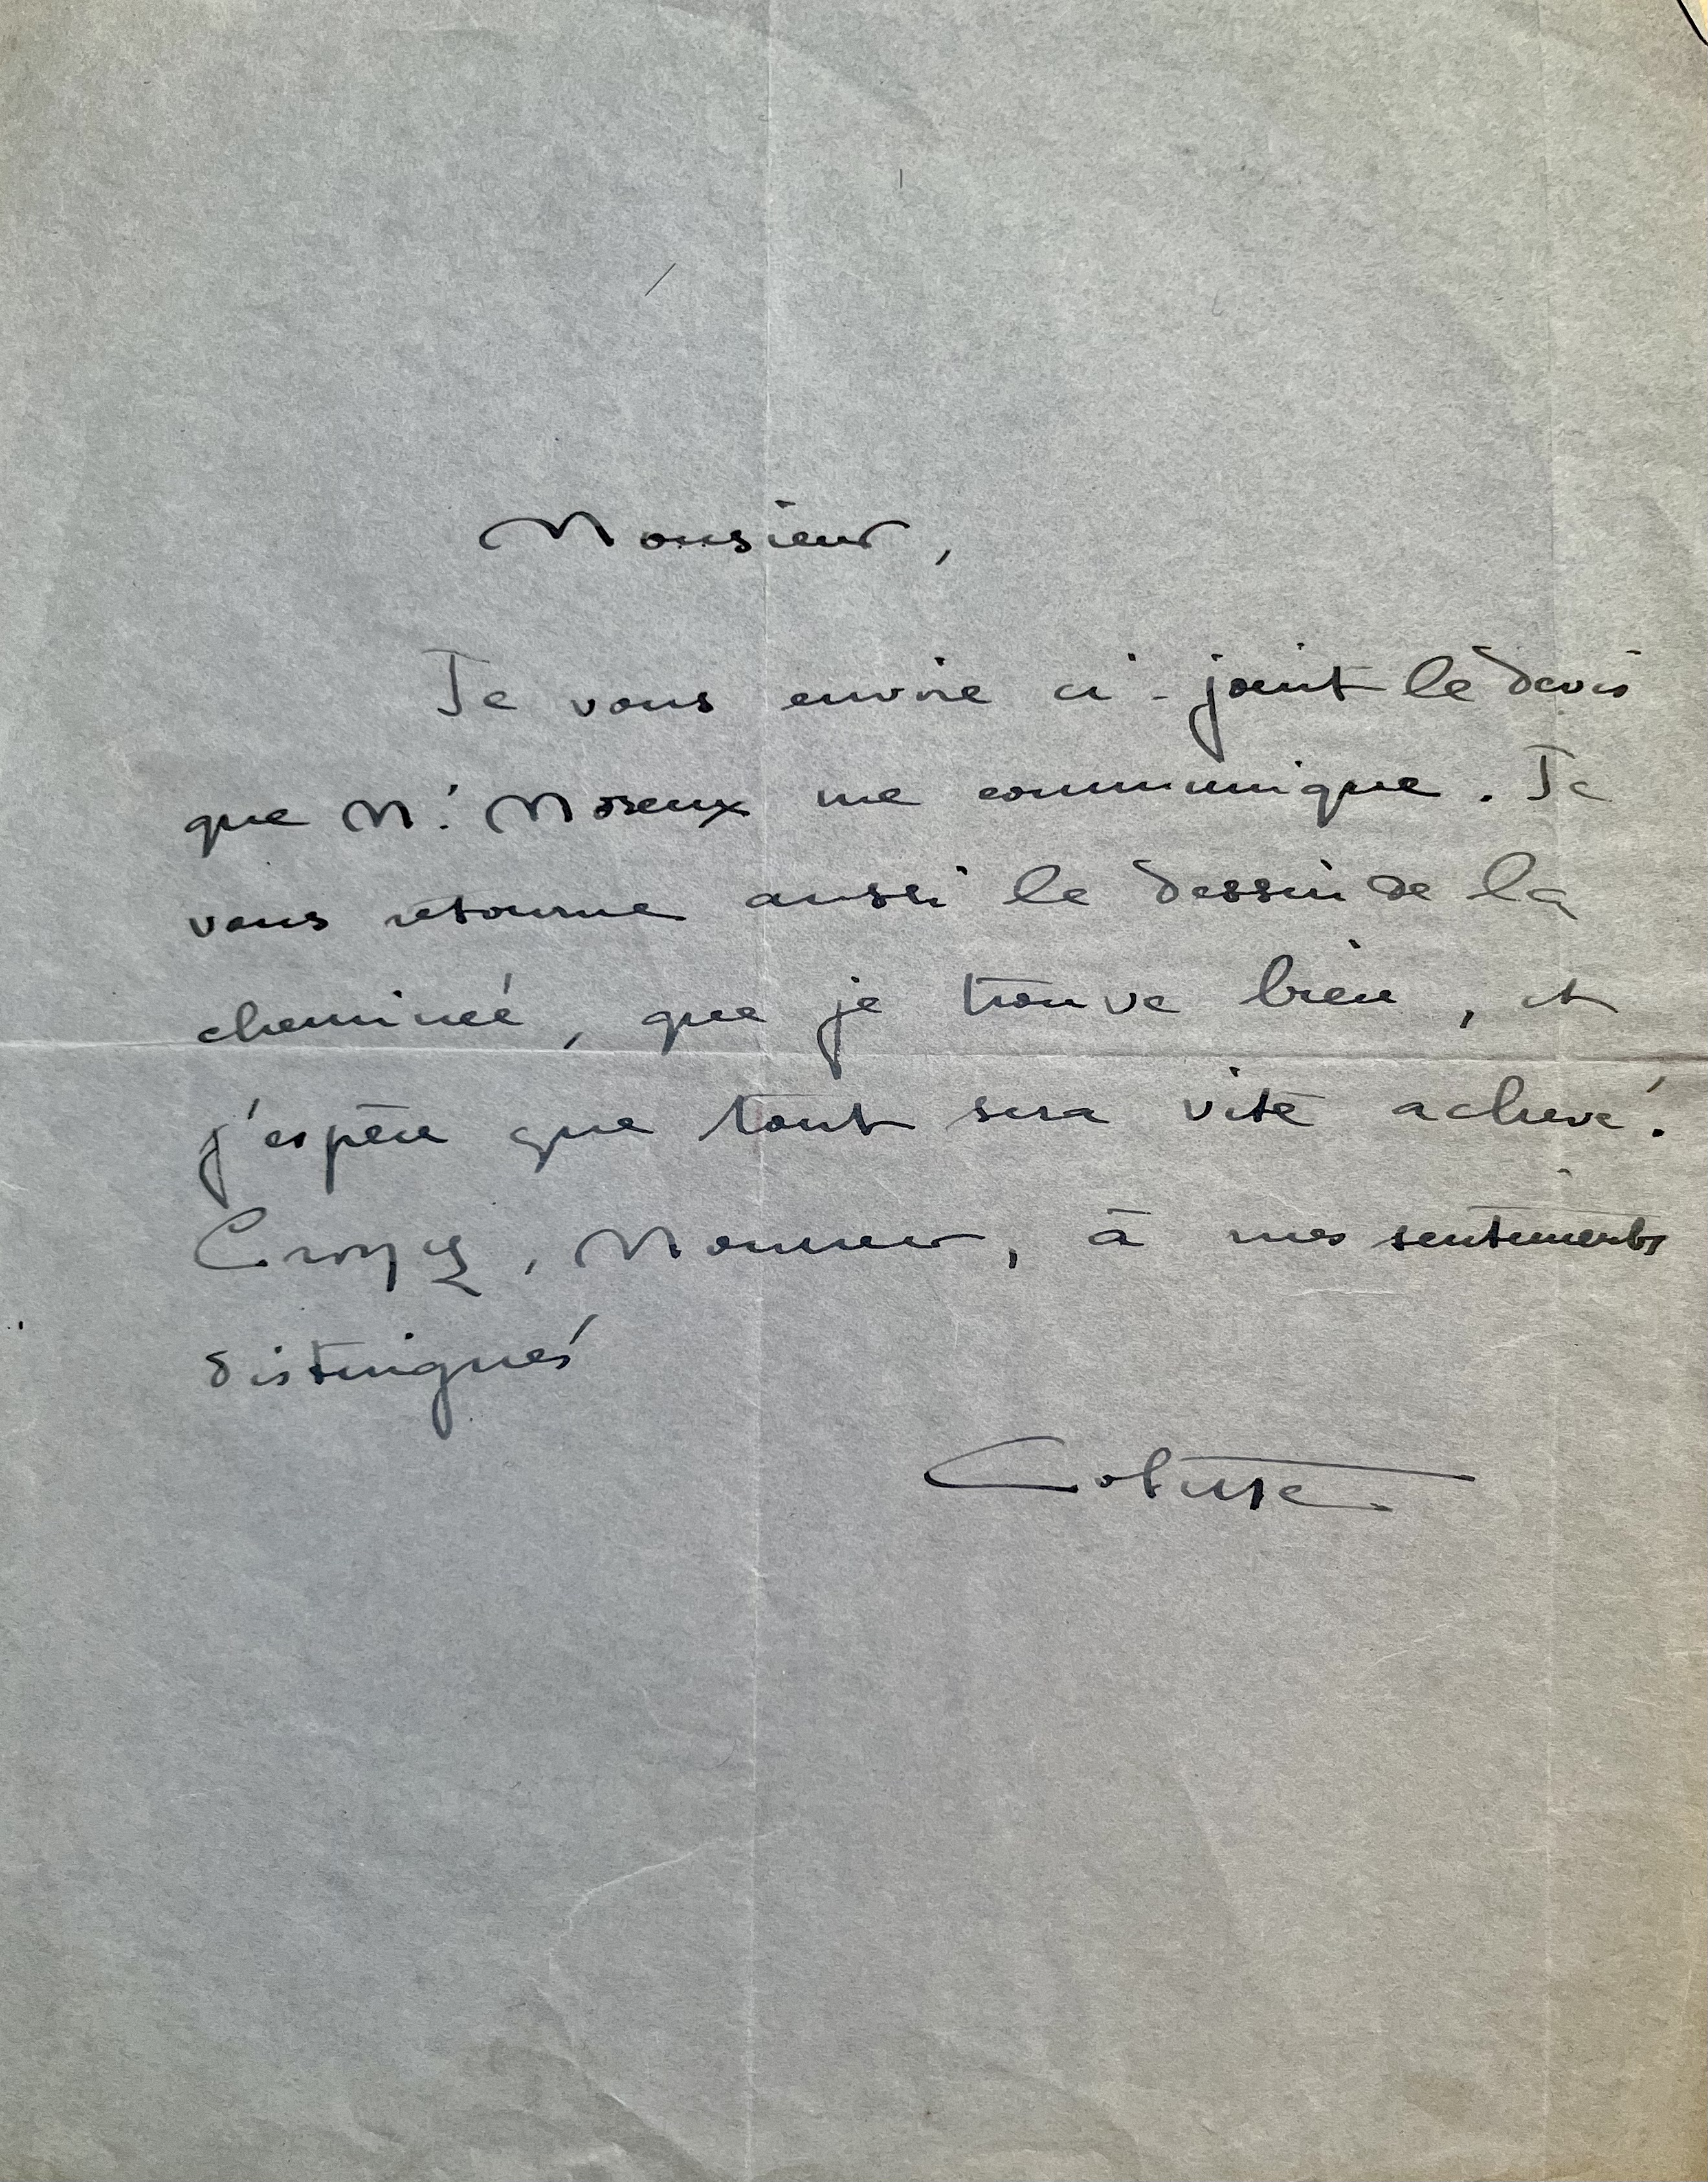 Monsieur,
Je vous envoie ci-joint le devis
que M. Moreux me communique. Je
vous retourne aussi le dessin de la
cheminée, que je trouve bien, et
j'espère que tout sera vite achevé.
Croyez, Monsieur, à mes sentiments
distingués
Colette